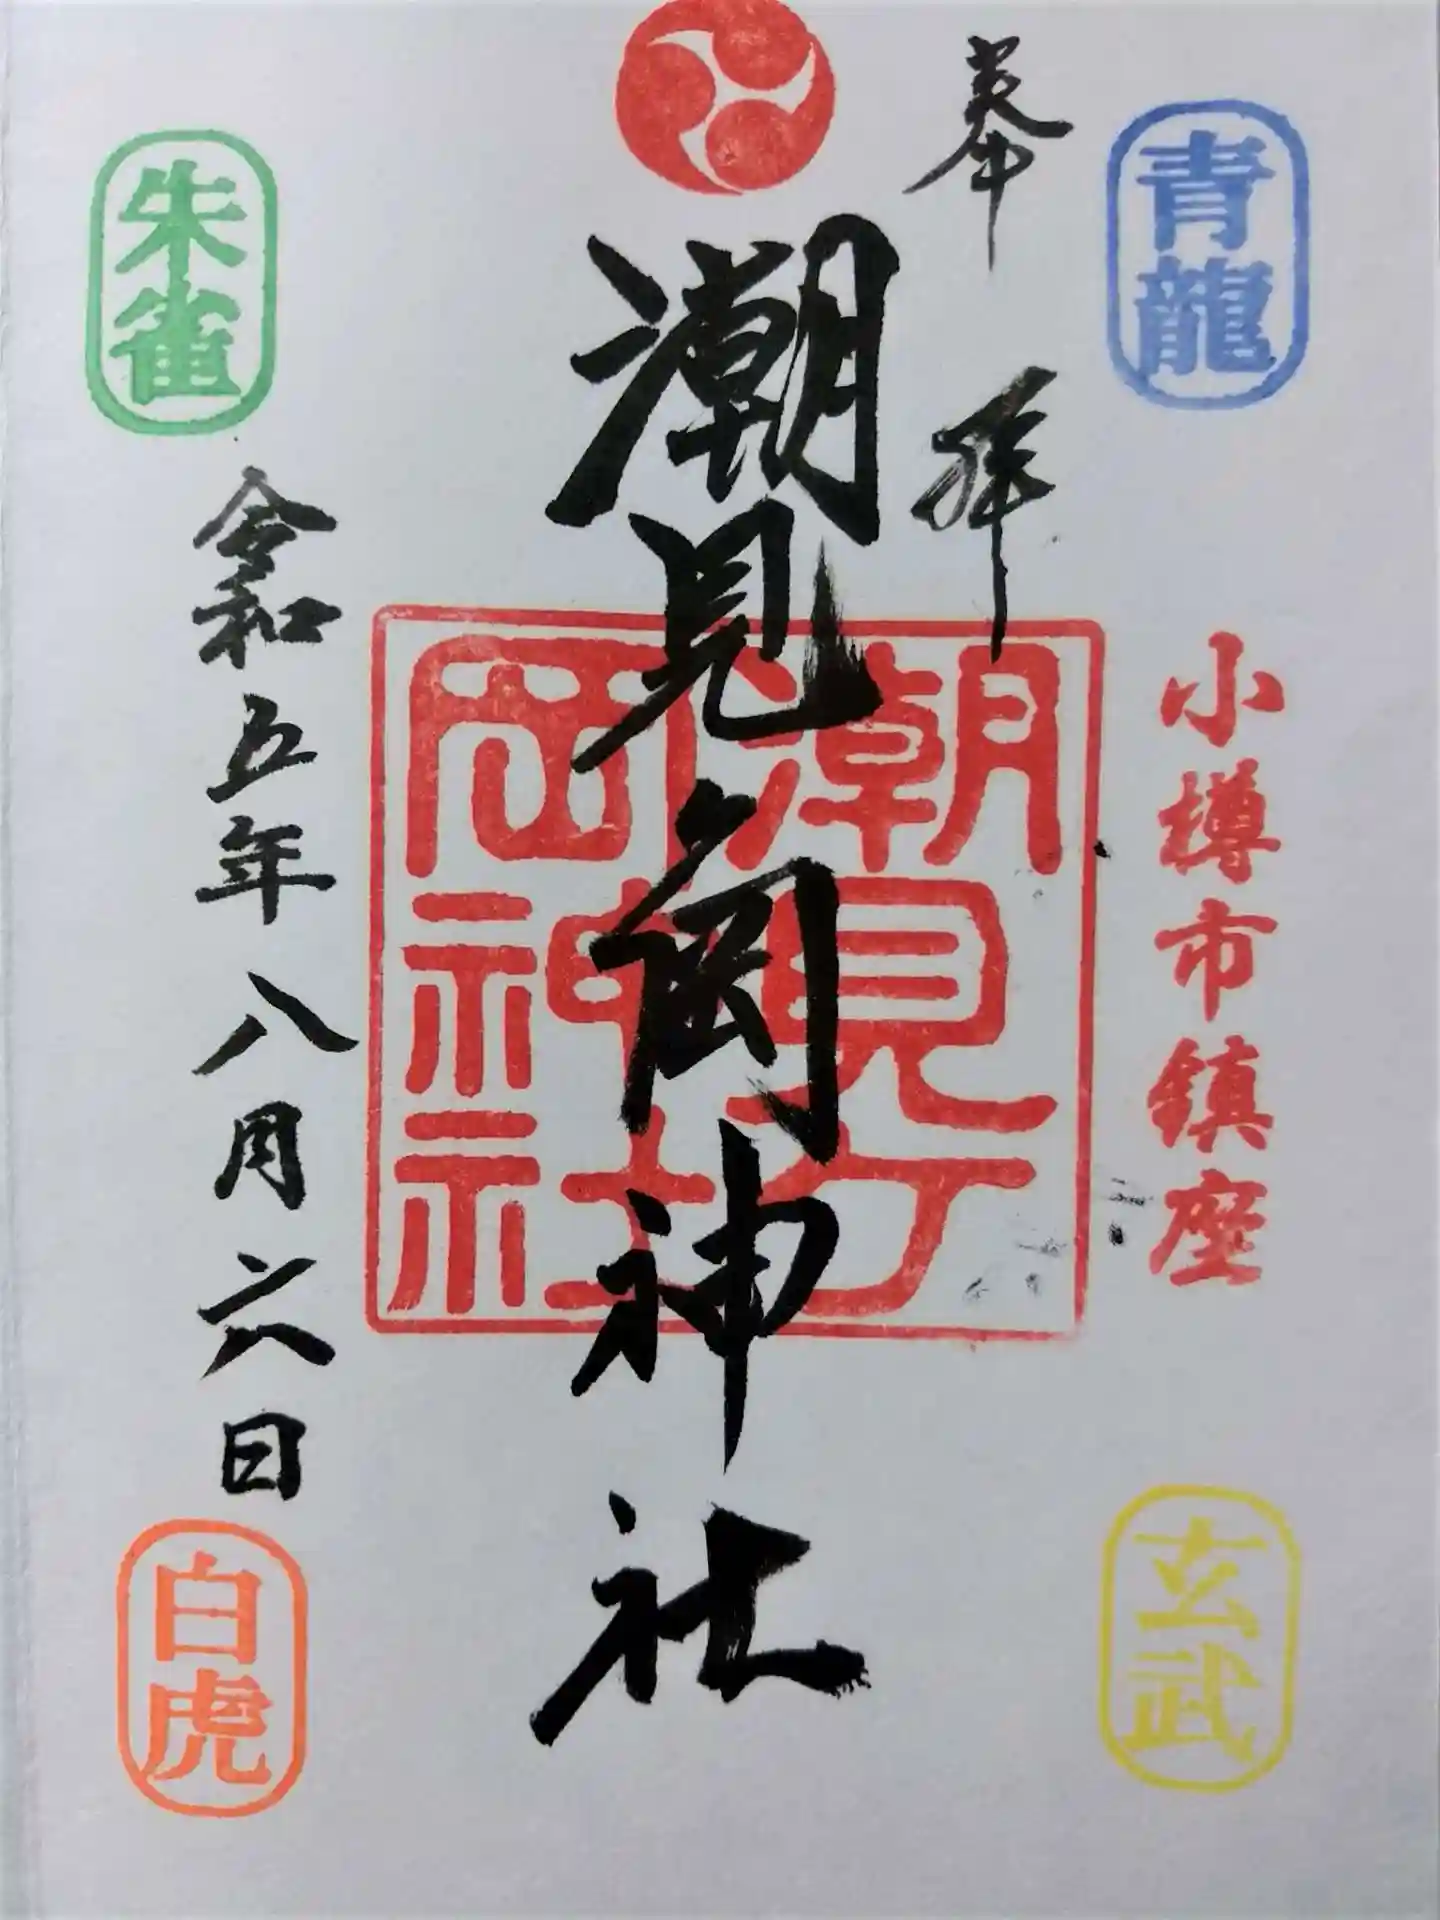 奉拝
青龍
小樽市鎮座
玄武
潮見ヶ岡神社
潮見ヶ
岡神社
朱雀
令和五年八月六日
白虎